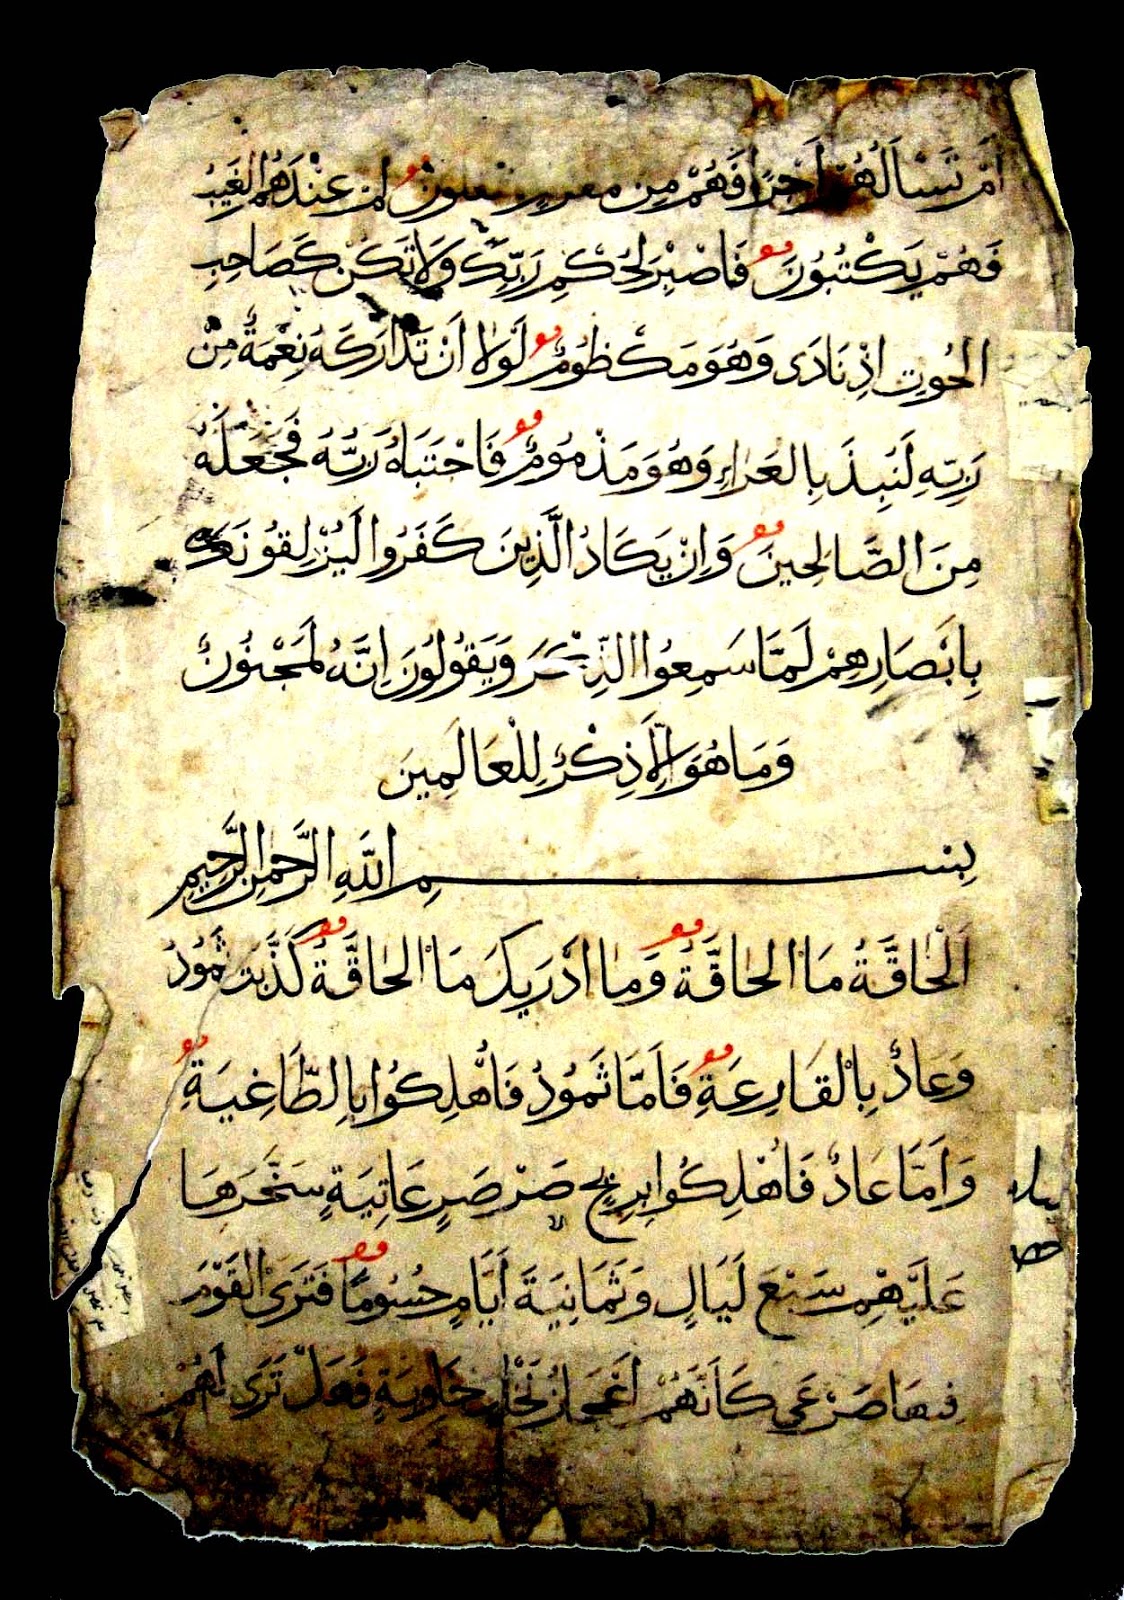 اَمْ تَسْاَلُهُمْ اَجْرًا فَهُمْ مِن مَغْرَمٍ مُثْقَلُونَ اَمْ عِنْدَهُمُ الْغَيْبُ
فَهُمْ يَكْتُبُونَ فَاصْبِرْ لِحُكْمِ رَبِّكَ وَلَا تَكُنْ كَصَاحِبِ
الْحُوتِ اِذْ نَادَى وَهُوَ مَكْظُومٌ لَوْلَا اَنْ تَدَارَكَهُ نِعْمَةٌ مِنْ
رَبِّهِ لَنُبِذَ بِالْعَرَاءِ وَهُوَ مَذْمُومٌ فَاجْتَبَاهُ رَبُّهُ فَجَعَلَهُ
مِنَ الصَّالِحِينَ وَاِنْ يَكَادُ الَّذِينَ كَفَرُوا لَيُزْلِقُونَكَ
بِاَبْصَارِهِمْ لَمَّا سَمِعُوا الذِّكْرَ وَيَقُولُونَ اِنَّهُ لَمَجْنُونٌ
وَمَا هُوَ اِلَّا ذِكْرٌ لِلْعَالَمِينَ
بِسْمِ اللَّهِ الرَّحْمٰنِ الرَّحِيمِ
اَلْحَاقَّةُ مَا الْحَاقَّةُ وَمَا اَدْرَيكَ مَا الْحَاقَّةُ كَذَّبَتْ ثَمُودُ
وَعَادٌ بِالْقَارِعَةِ فَاَمَّا ثَمُودُ فَاُهْلِكُوا بِالطَّاغِيَةِ
وَاَمَّا عَادٌ فَاُهْلِكُوا بِرِيحٍ صَرْصَرٍ عَاتِيَةٍ سَخَّرَهَا
عَلَيْهِمْ سَبْعَ لَيَالٍ وَثَمَانِيَةَ اَيَّامٍ حُسُومًا فَتَرَى الْقَوْمَ
فِيهَا صَرْعَى كَاَنَّهُمْ اَعْجَازُ نَخْلٍ خَاوِيَةٍ فَهَلْ تَرَى لَهُمْ